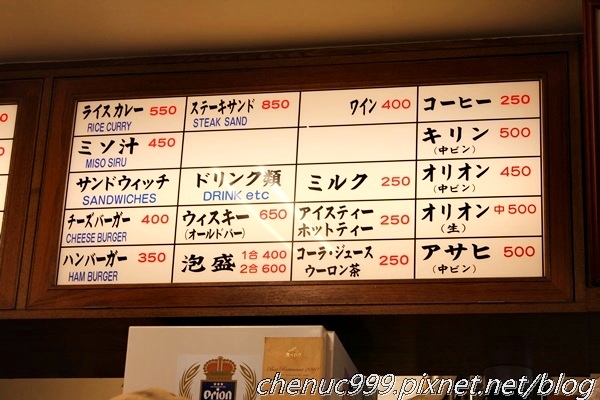 ライスカレー 550
RICE CURRY
ステーキサンド 850
STEAK SAND
ワイン 400
コーヒー 250
ミソ汁 450
MISO SIRU
キリン 500
(中ビン)
サンドウィッチ
SANDWICHES
ドリンク類
DRINK etc
ミルク 250
オリオン 450
(中ビン)
チーズバーガー 400
CHEESE BURGER
ウィスキー 650
(オールドバー)
アイスティー
ホットティー 250
オリオン 中500
(生)
ハンバーガー 350
HAM BURGER
泡盛 1合 400
2合 600
コーラ・ジュース
ウーロン茶 250
アサヒ 500
(中ビン)
Orion
chenuc999.pixnet.net/blog